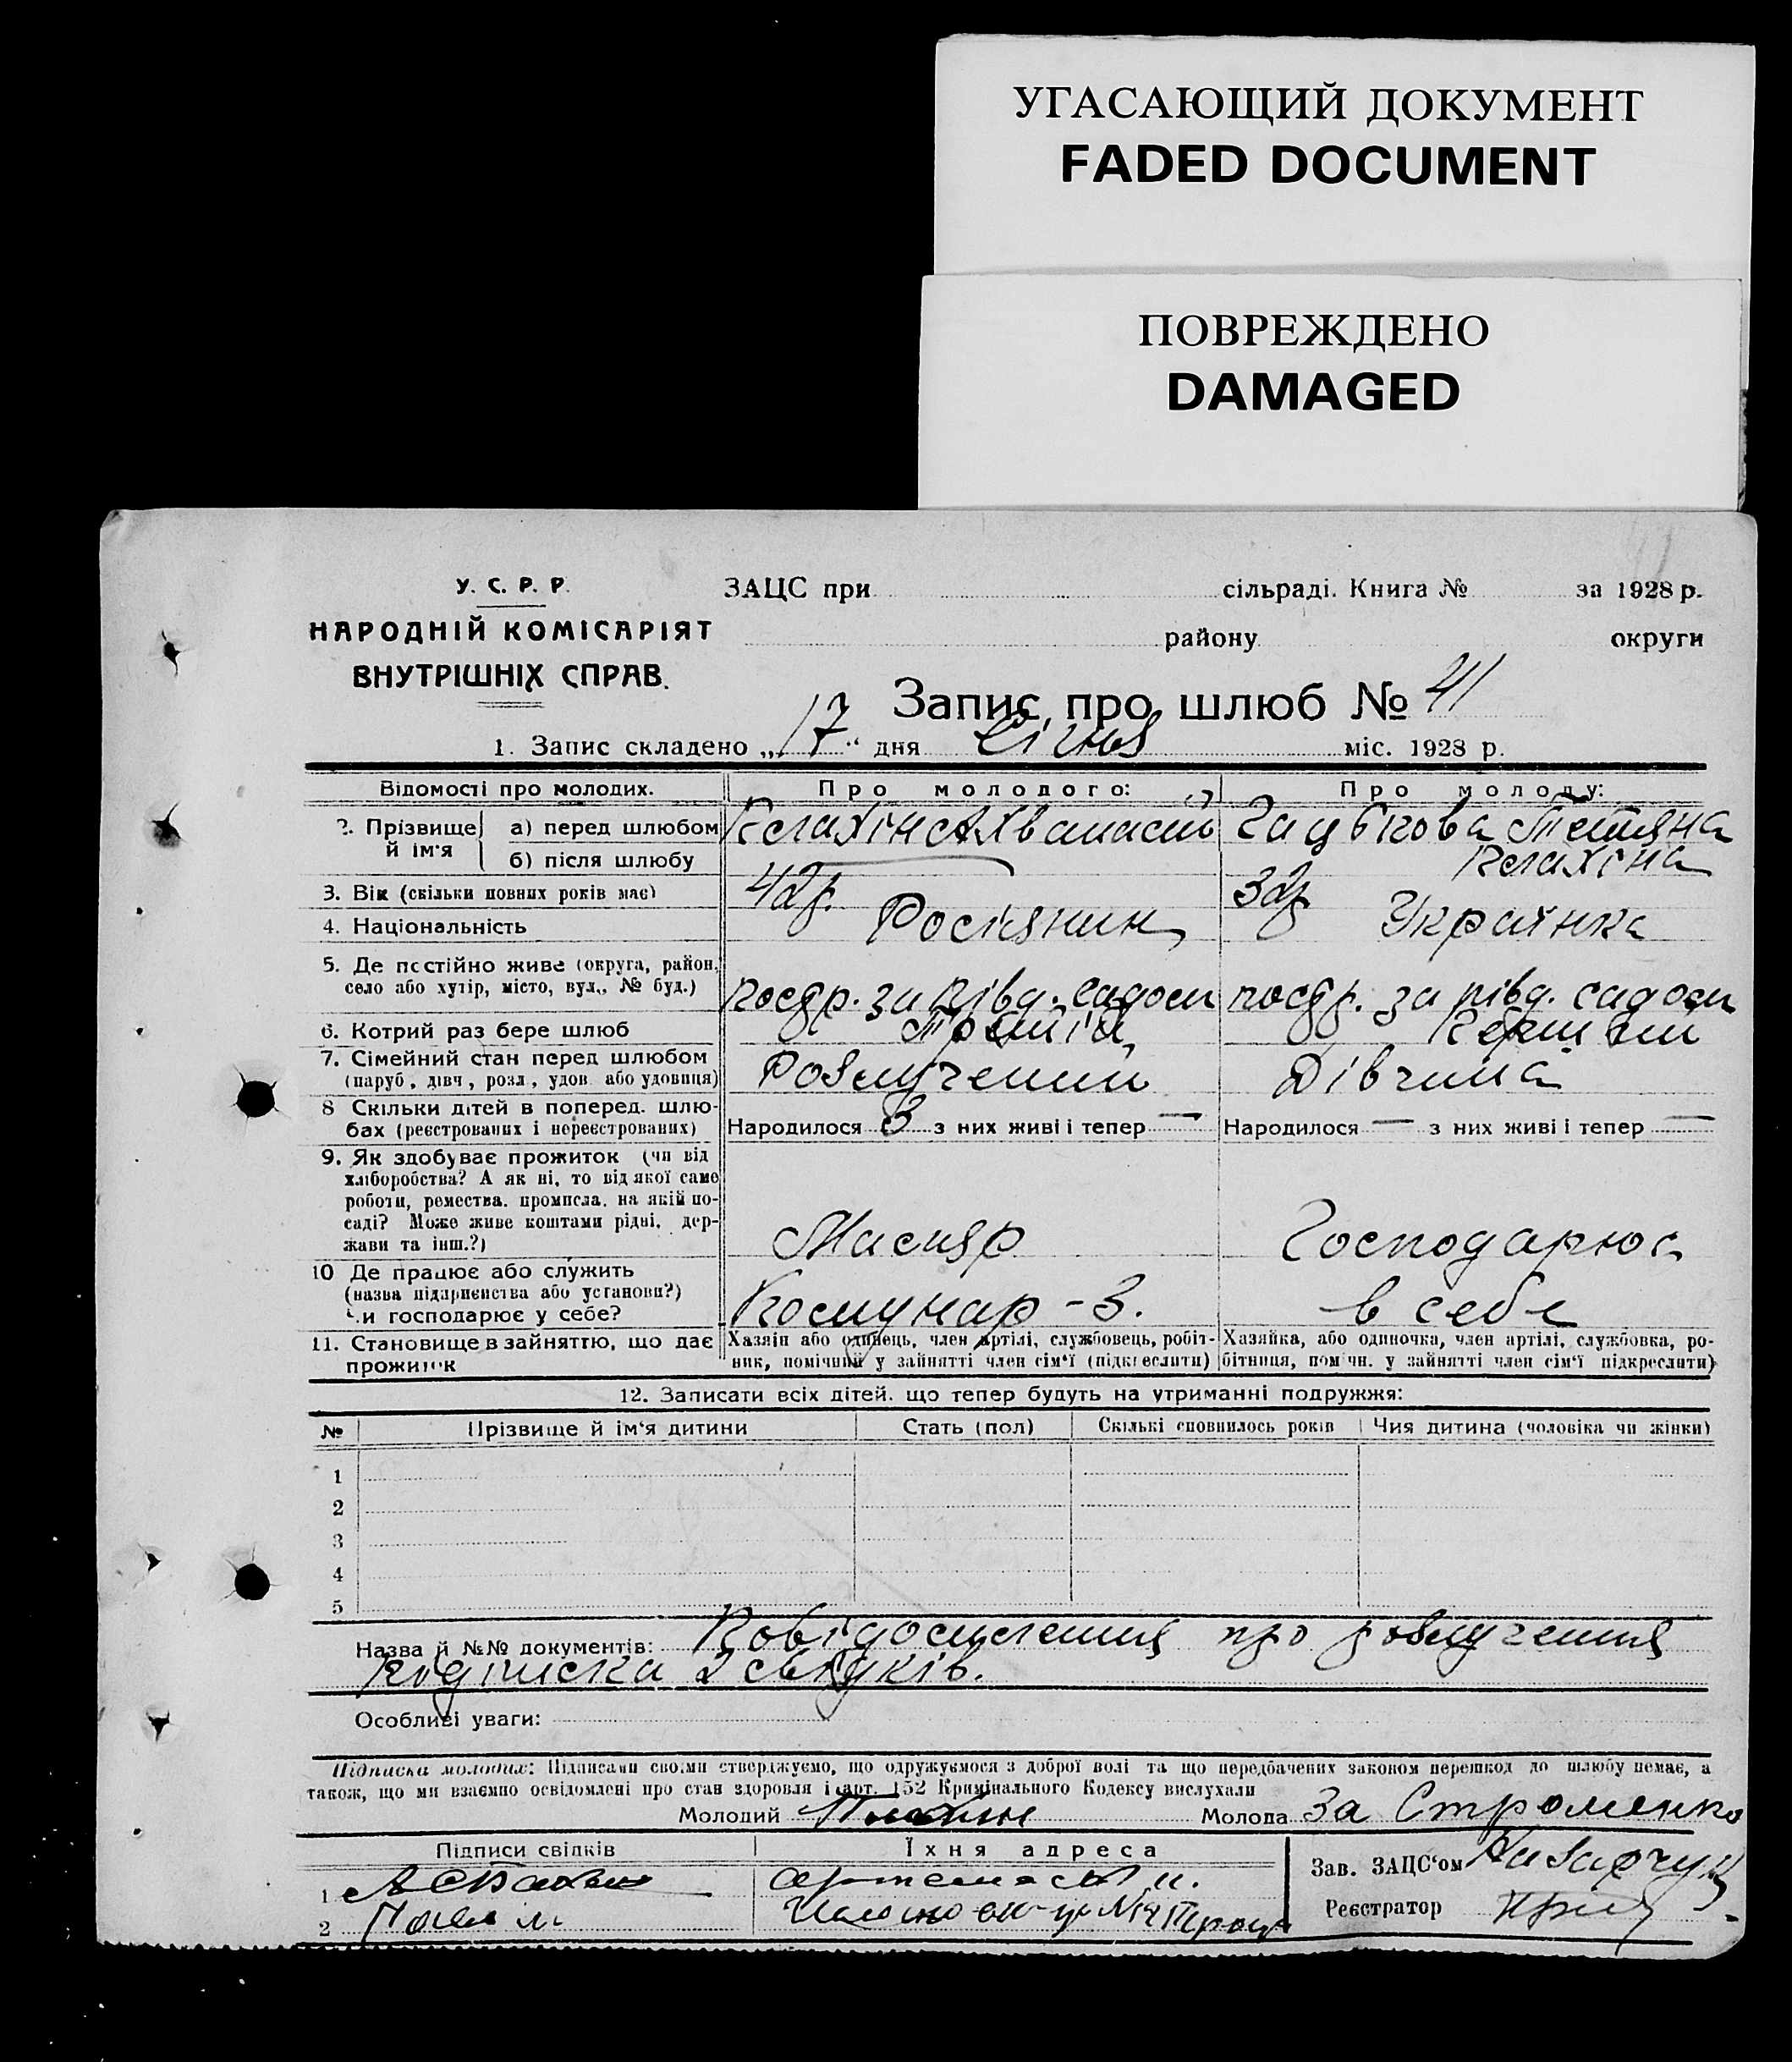 УГАСАЮЩИЙ ДОКУМЕНТ
FADED DOCUMENT
ПОВРЕЖДЕНО
DAMAGED
У. С. Р. Р.
НАРОДНІЙ КОМІСАРІЯТ
ВНУТРІШНІХ СПРАВ.
ЗАЦС при сільраді. Книга № за 1928 р.
району округи
Запис про шлюб № 41
1. Запис складено „17“ дня Січня міс. 1928 р.
Відомості про молодих. Про молодого: Про молоду:
2. Прізвище й ім'я
а) перед шлюбом Тетяна
б) після шлюбу
3. Вік (скільки повних років має) 42р. 32р
4. Національність Росіянин Українка
5. Де постійно живе (округа, район, село або хутір, місто, вул., № буд.) посдр. за півд. садом посдр. за півд. садом
6. Котрий раз бере шлюб Третій Перший
7. Сімейний стан перед шлюбом (паруб, дівч, розл, удов. або удовиця) Розлучений Дівчина
8 Скільки дітей в поперед. шлюбах (реєстрованих і нереєстрованих) Народилося 3 з них живі і тепер — Народилося — з них живі і тепер —
9. Як здобуває прожиток (чи від хліборобства? А як ні, то від якої саме роботи, ремества, промисла, на якій посаді? Може живе коштами рідні, держави та інш.?) Маляр Господарює
10 Де працює або служить (назва підприємства або установи?) Чи господарює у себе? Комунар - 3. в себе
11. Становище в зайняттю, що дає прожиток
Хазяїн або одинець, член артілі, службовець, робітник, помічний у зайнятті член сім'ї (підкреслити)
Хазяйка, або одиночка, член артілі, службовка, робітниця, помічн. у зайнятті член сім'ї підкреслити)
12. Записати всіх дітей, що тепер будуть на утриманні подружжя:
№ Прізвище й ім'я дитини Стать (пол) Скількі сповнилось років Чия дитина (чоловіка чи жінки)
1
2
3
4
5
Назва й №№ документів: Повідомлення про розлучення
підписка 2 свідків.
Особливі уваги:
Підписка молодих: Підписами своїми стверджуємо, що одружуємося з доброї волі та що передбачених законом перешкод до шлюбу немає, а
також, що ми взаємно освідомлені про стан здоровля і арт. 152 Кримінального Кодексу вислухали
Молодий Молода За Строменко
Підписи свідків Їхня адреса Зав. ЗАЦС'ом
1
2
Реєстратор